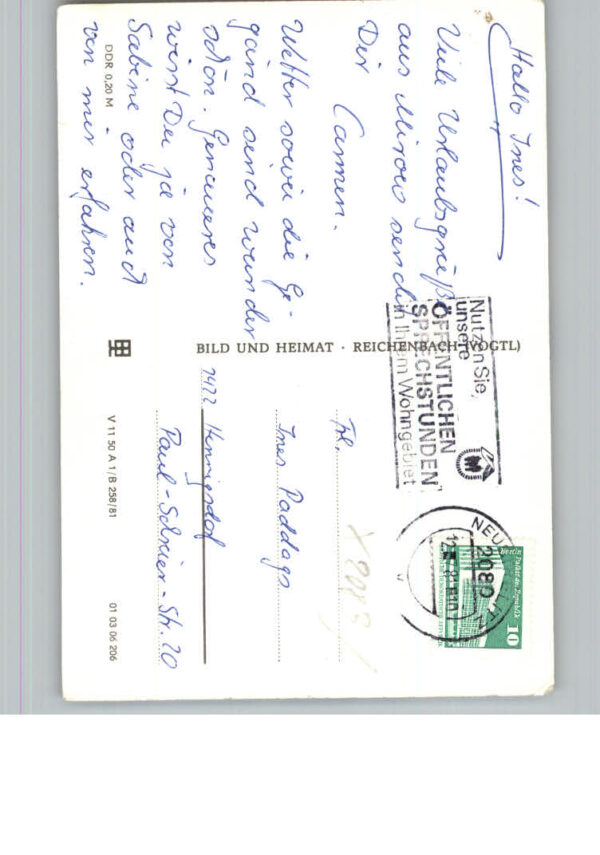 Hallo Ines!
Viele Urlaubsgrüße
aus Mirow sendet
Dir Carmen.
Wetter sowie die Ge-
gend sind wunder
schön. Genaueres
wirst Du ja von
Sabine oder auch
von mir erfahren.
DDR 0,20 M
BILD UND HEIMAT · REICHENBACH (VOGTL)
V 11 50 A 1/B 258/81
01 03 06 206
Nutzen Sie
unsere
ÖFFENTLICHEN
SPRECHSTUNDEN
in Ihrem Wohngebiet
2080
Berlin
Palast der Republik
10
Frl.
Ines Paddags
1422 Hennigsdorf
Paul-Schreier-Str. 20